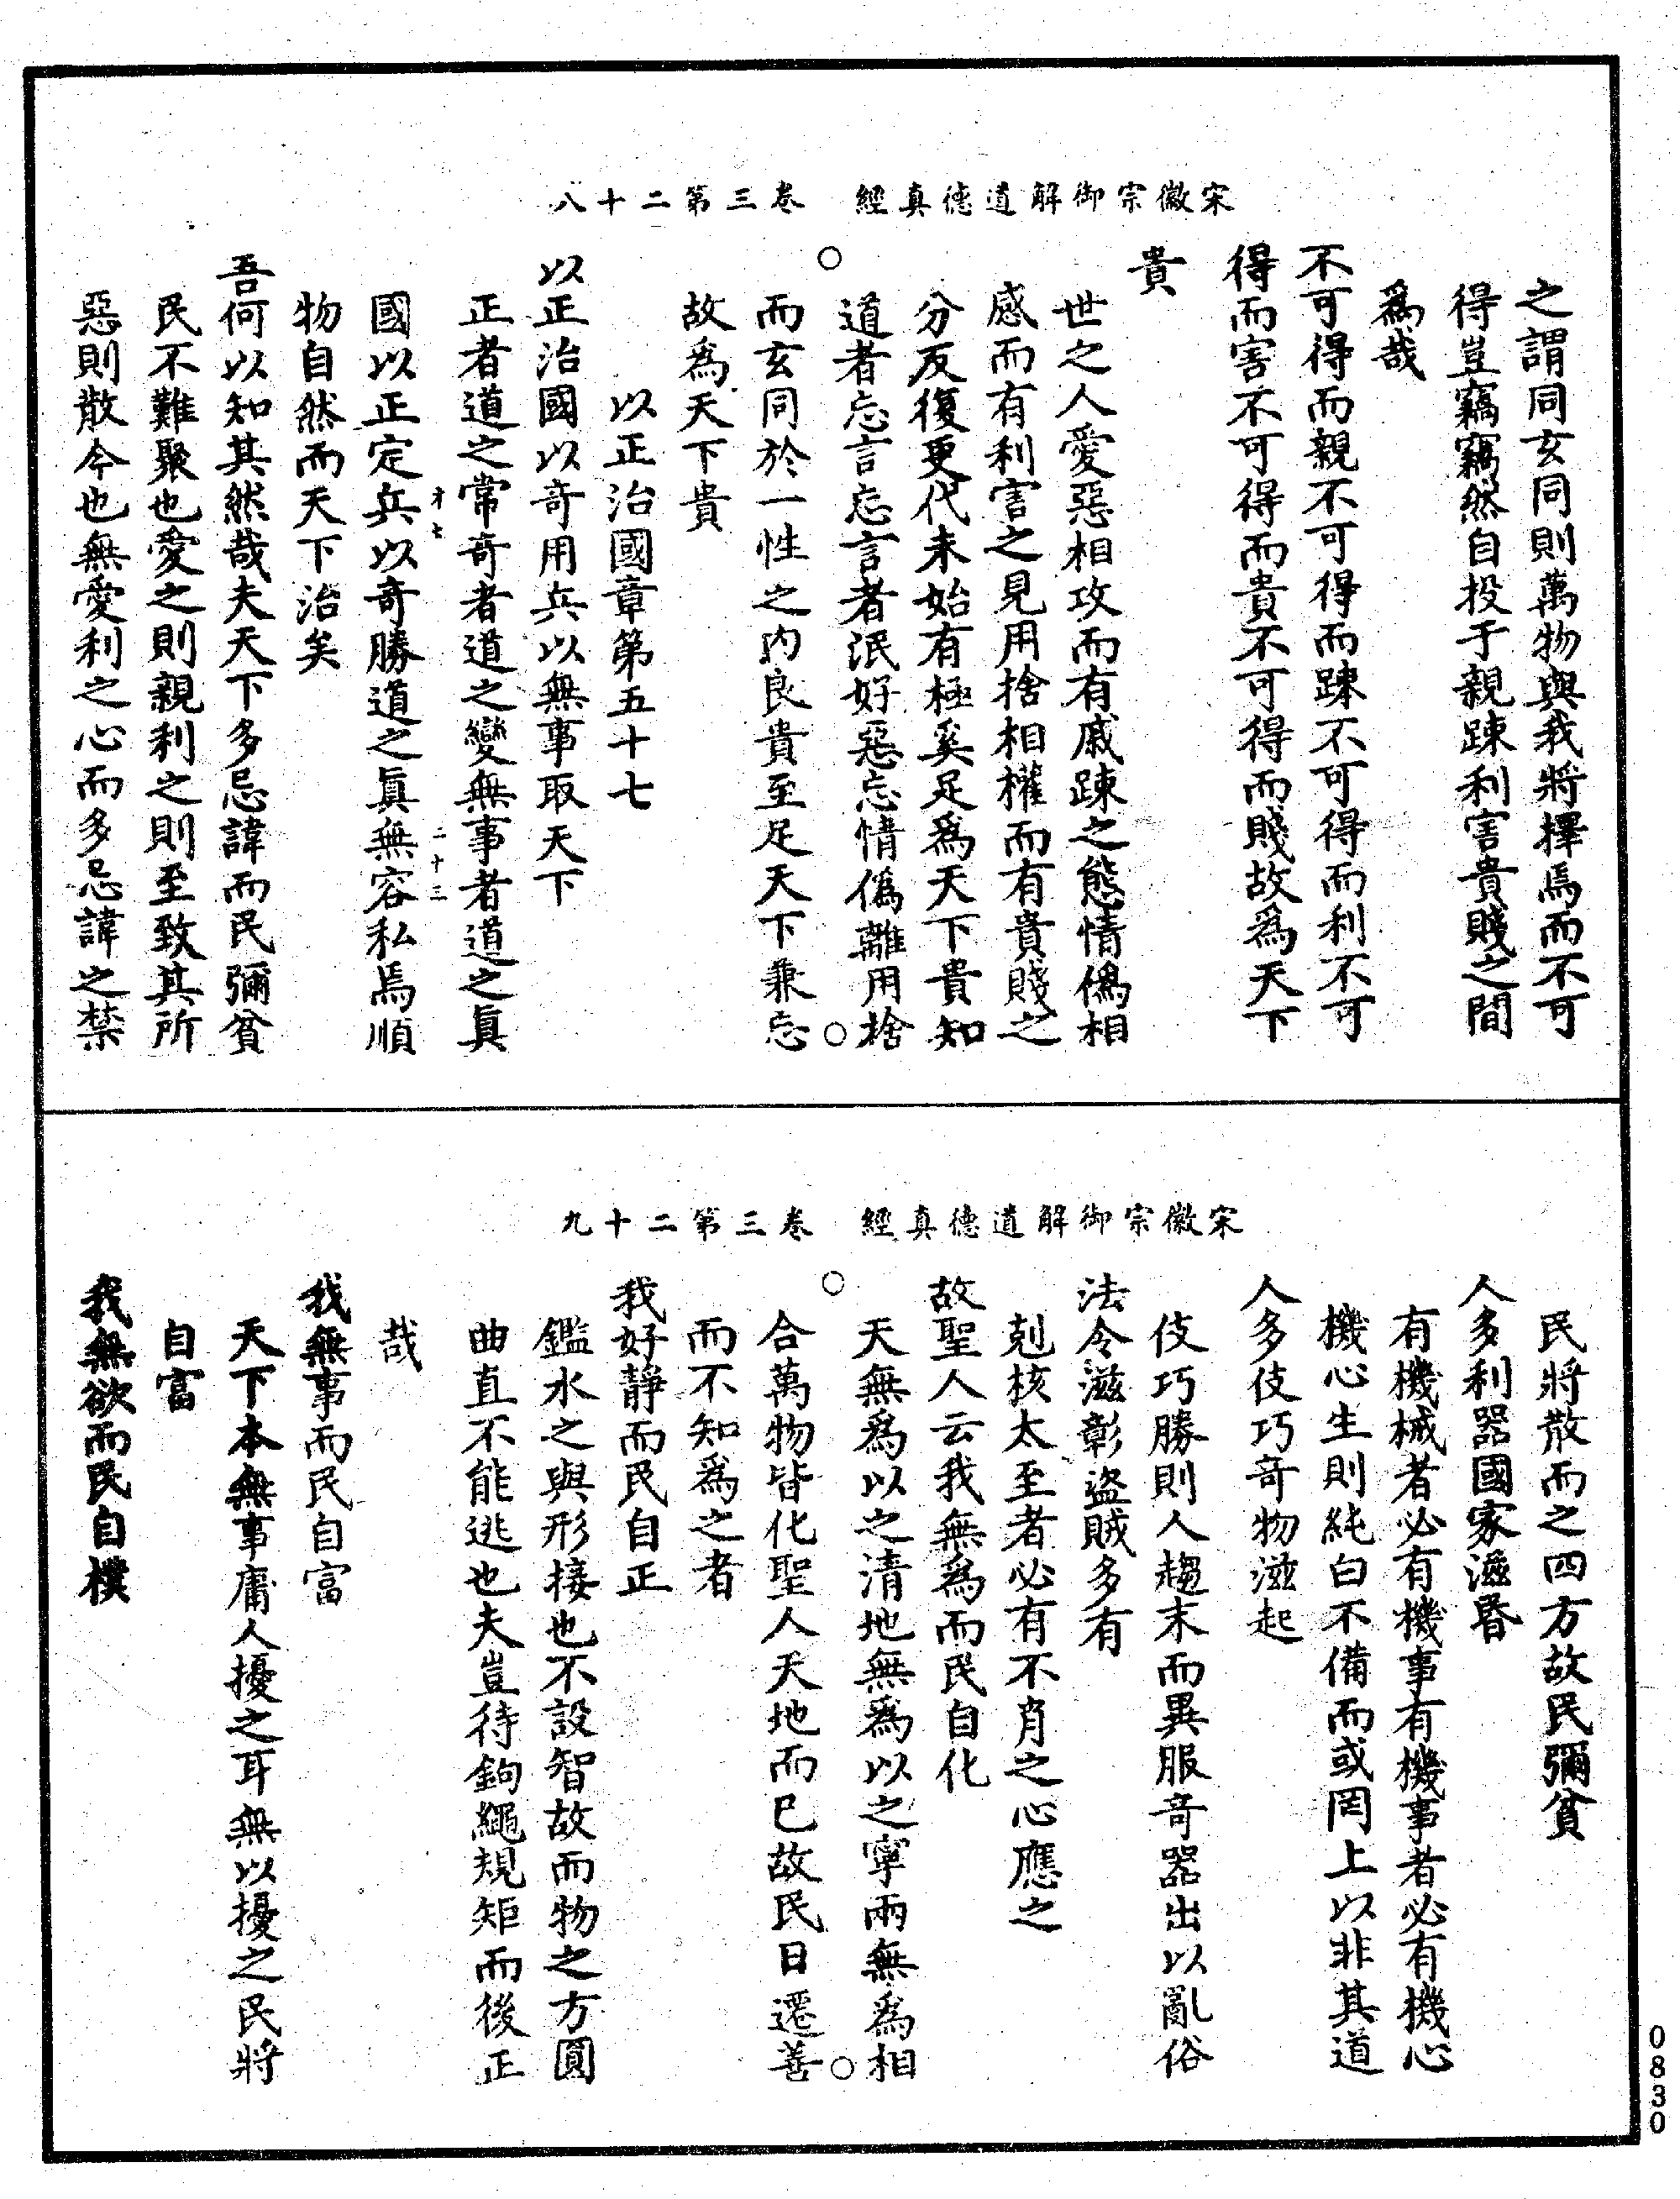 宋徽宗御解道德真經　卷三第二十八
之謂同玄同則萬物與我將擇焉而不可
得豈竊竊然自投于親踈利害貴賤之間
爲哉
不可得而親不可得而踈不可得而利不可
得而害不可得而貴不可得而賤故爲天下
貴
世之人愛惡相攻而有戚踈之態情僞相
感而有利害之見用捨相權而有貴賤之
分反復更代未始有極奚足爲天下貴知
道者忘言忘言者泯好惡忘情僞離用捨
而玄同於一性之内良貴至足天下兼忘
故爲天下貴
以正治國章第五十七
以正治國以奇用兵以無事取天下
正者道之常奇者道之變無事者道之眞
才七　二十三
國以正定兵以奇勝道之眞無容私焉順
物自然而天下治矣
吾何以知其然哉夫天下多忌諱而民彌貧
民不難聚也愛之則親利之則至致其所
惡則散今也無愛利之心而多忌諱之禁
宋徽宗御解道德真經　卷三第二十九
民將散而之四方故民彌貧
人多利器國家滋昬
有機械者必有機事有機事者必有機心
機心生則純白不備而或罔上以非其道
人多伎巧奇物滋起
伎巧勝則人趨末而異服奇器出以亂俗
法令滋彰盗賊多有
剋核太至者必有不肖之心應之
故聖人云我無爲而民自化
天無爲以之清地無爲以之寧兩無爲相
合萬物皆化聖人天地而已故民日遷善
而不知爲之者
我好静而民自正
鑑水之與形接也不設智故而物之方圓
曲直不能逃也夫豈待鉤繩規矩而後正
哉
我無事而民自富
天下本無事庸人擾之耳無以擾之民將
自富
我無欲而民自樸
0830